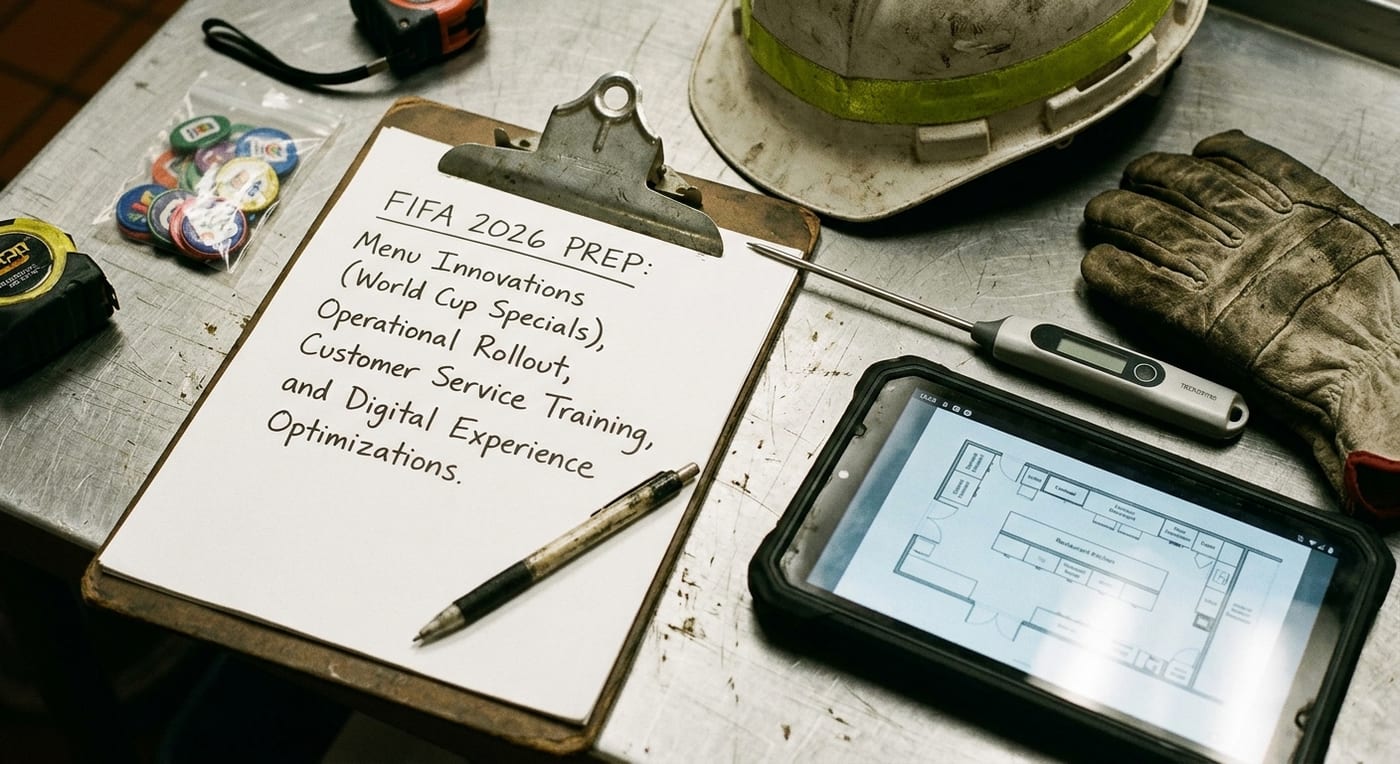 FIFA 2026 PREP:
Menu Innovations
(World Cup Specials),
Operational Rollout,
Customer Service Training,
and Digital Experience
Optimizations.
Restaurant Kitchen